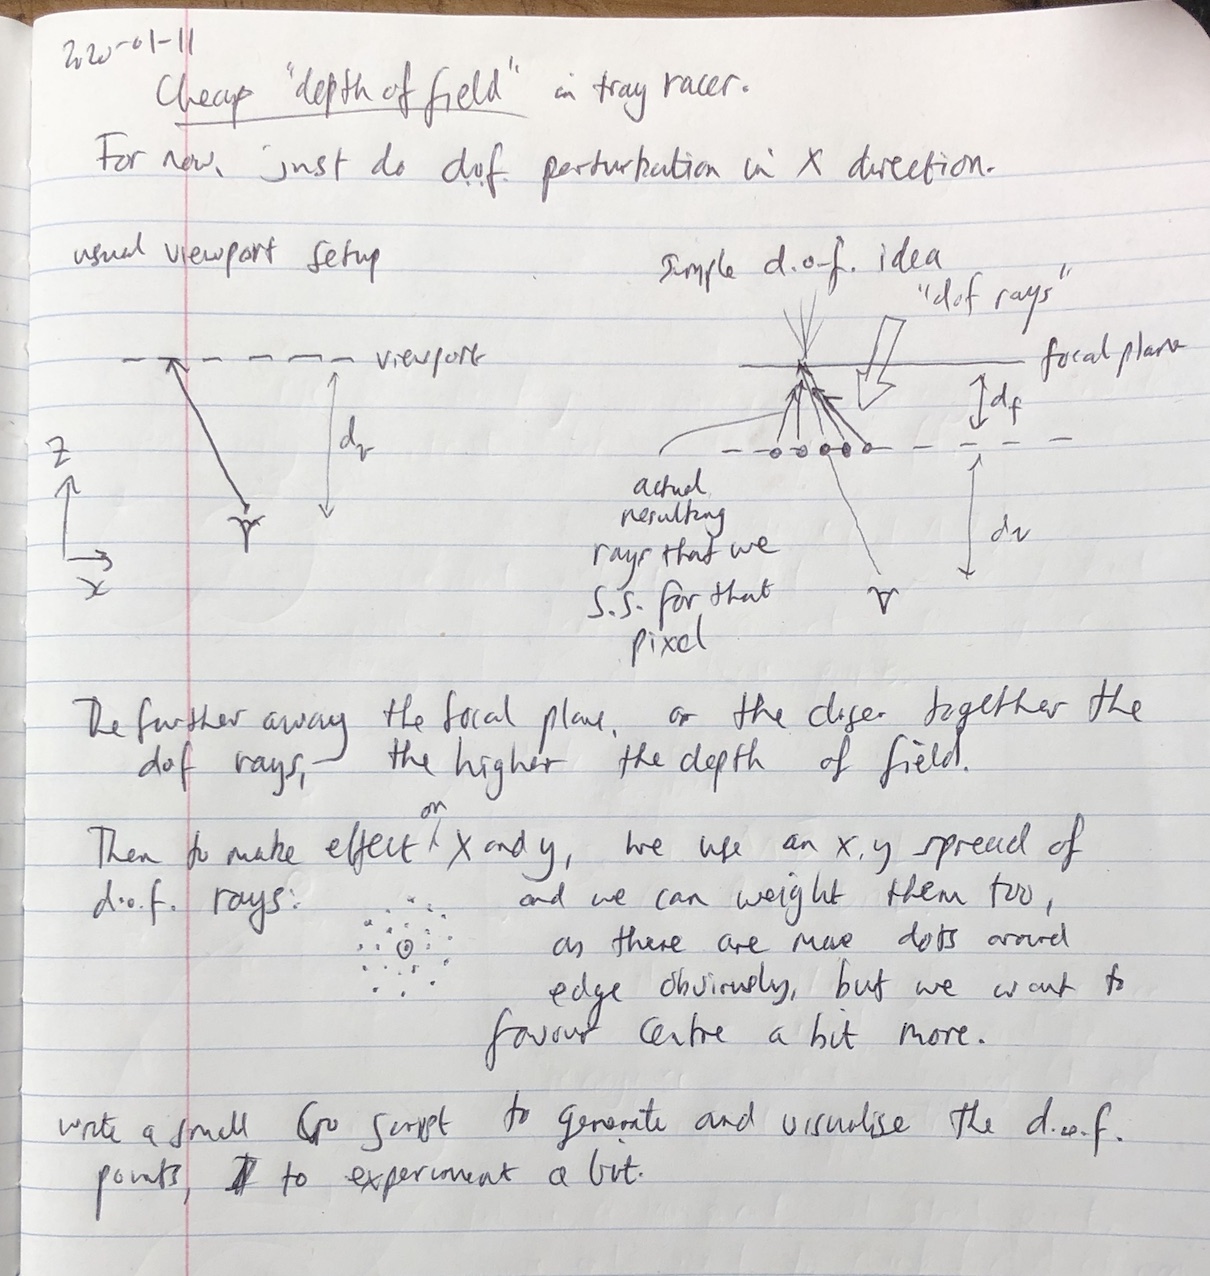 2020-01-11
Cheap "depth of field" in tray racer.
For now, just do dof. perturbation in X direction.
usual viewport setup
simple d.o.f. idea
"dof rays"
viewport
focal plane
dv
df
z
x
actual
resulting
rays that we
s.s. for that
pixel
dv
The further away the focal plane, or the closer together the
dof rays, the higher the depth of field.
on
Then to make effect ^ X and y, we use an x, y spread of
d.o.f. rays:
and we can weight them too,
as there are more dots around
edge obviously, but we want to
favour centre a bit more.
write a small Go script to generate and visualise the d.o.f.
points, to experiment a bit.